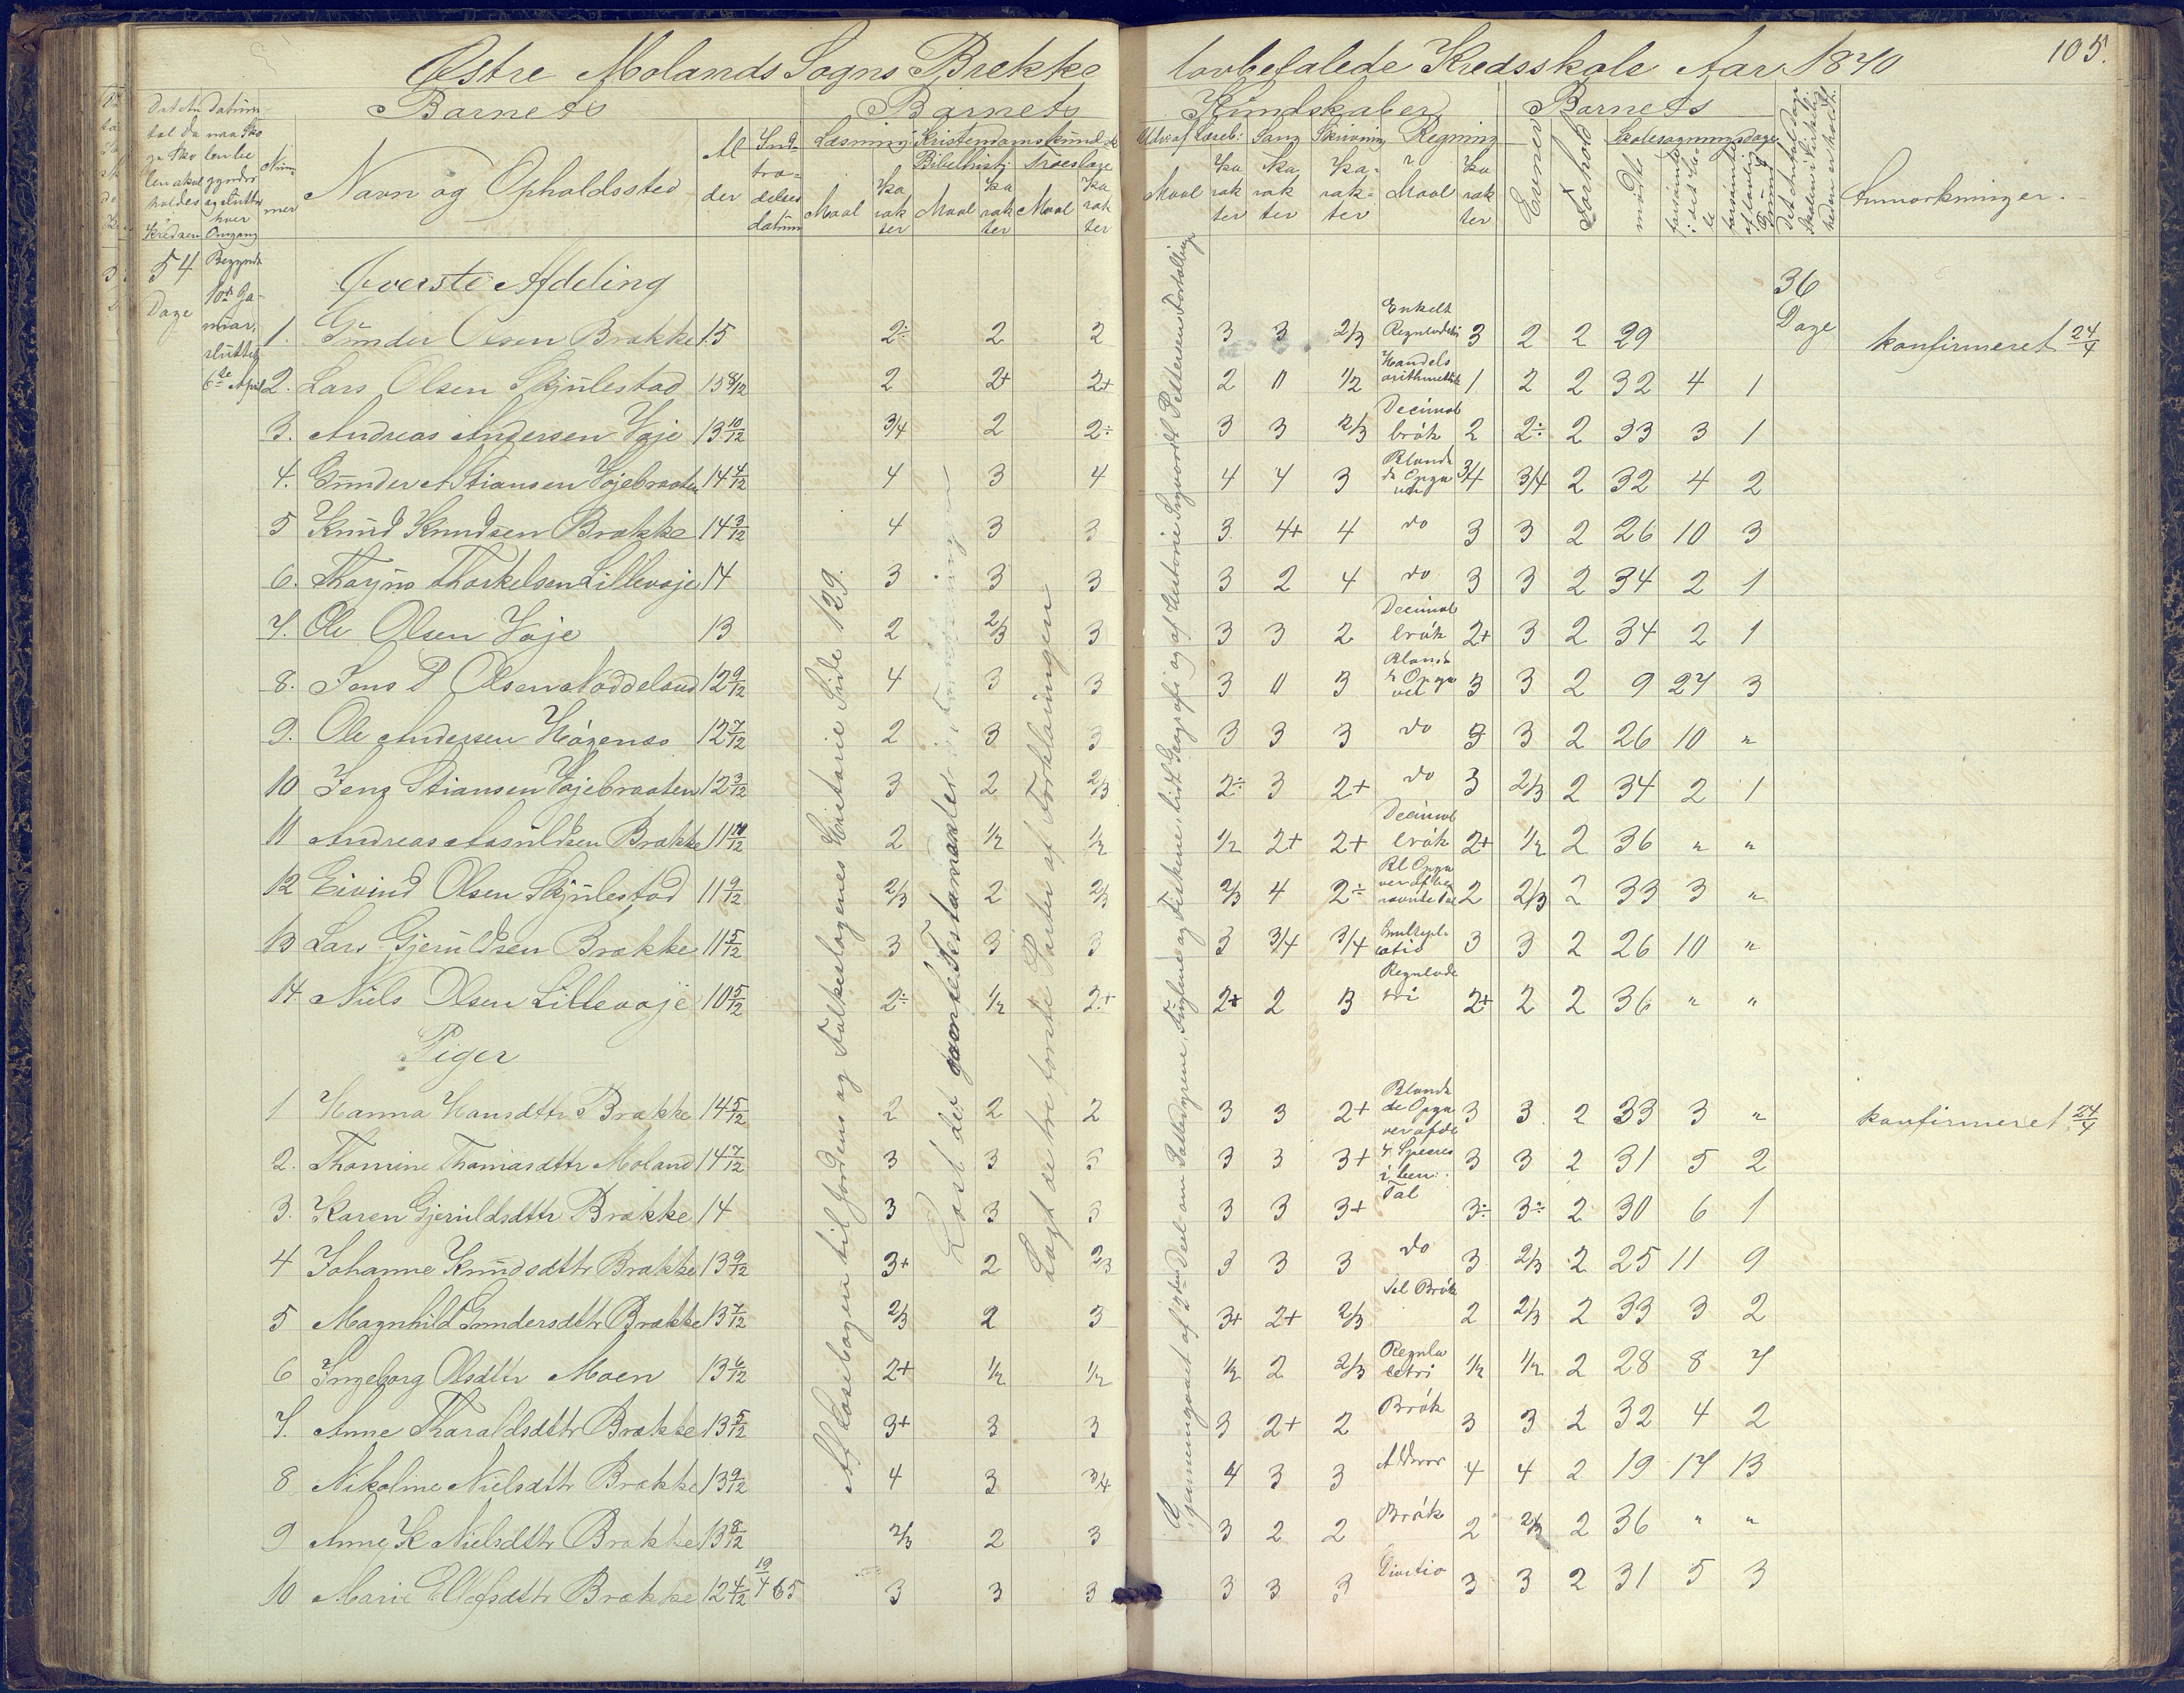 Østre Molands Sogns Brekke lovbefalede Kredsskole Aar 1870 105.
Barnets Barnets Kundskaber Barnets
Nummer Navn og Opholdssted Alder Indtrædelses datum Læsning Kristendomskundsk. Bibelhist: Troeslære Udv. af Læseb: Sang Skrivning Regning Evner Forhold Skolesøgningsdage Anmærkninger.
Maal Karakter Maal Karakter Maal Karakter Maal Karakter Karakter Karakter Maal Karakter mødte forsømte i det Hele forsømte af lovlig Grund
54 Dage
Begyndte 10de Januar, sluttet 6te April
36 Dage
Øverste Afdeling
1. Gunder Olsen Brække 15 2÷ 2 2 3 3 2/3 Enkelt Reguladetri 3 2 2 29 konfirmeret 24/4
2. Lars Olsen Skjulestad 15 8/12 2 2+ 2+ 2 " 1/2 Handels arithmetik 1 2 2 32 4 1
3. Andreas Andersen Vaje 13 10/12 3/4 2 2÷ 3 3 2/3 Decimal brøk 2 2÷ 2 33 3 1
4. Gunder A Stiansen Vajebraaten 14 4/12 4 3 4 4 4 3 Blandede Opgaver 3/4 3/4 2 32 4 2
5 Knud Knudsen Brække 14 3/12 4 3 3 3 4+ 4 do 3 3 2 26 10 3
6. Thorjus Thorkelsen Lillevaje 14 3 3 3 3 2 4 do 3 3 2 34 2 1
7. Ole Olsen Vaje 13 2 2/3 3 3 3 2 Decimal brøk 2+ 3 2 34 2 1
8. Jens P Olsen Noddeland 12 9/12 4 3 3 3 " 3 Blandede Opgaver 3 3 2 9 27 3
9. Ole Andersen Høgenæs 12 7/12 2 3 3 3 3 3 do 3 3 2 26 10 "
10 Jens Stiansen Vajebraaten 12 3/12 3 2 2/3 2÷ 3 2+ do 3 2/3 2 34 2 1
11 Andreas Aasuldsen Brække 11 10/12 2 1/2 1/2 1/2 2+ 2+ Decimal brøk 2+ 1/2 2 36 " "
12 Eivind Olsen Skjulestad 11 9/12 2/3 2 2/3 2/3 4 2÷ Bl Opgaver af benævnte Tal 2 2/3 2 33 3 "
13 Lars Gjeruldsen Brække 11 5/12 3 3 3 3 3/4 3/4 Multiplicatio 3 3 2 26 10 "
14 Niels Olsen Lillevaje 10 5/12 2÷ 1/2 2+ 2+ 2 3 Regulade tri 2+ 2 2 36 " "
Piger
1 Hanna Hansdttr Brække 14 5/12 2 2 2 3 3 2+ Blandede Opgaver af de 3 3 2 33 3 " konfirmeret 24/4
2. Thomine Thomasdttr Moland 14 7/12 3 3 3 3 3 3+ 4 Species i ben: 3 3 2 31 5 2
3. Karen Gjeruldsdttr Brække 14 3 3 3 3 3 3+ Tal 3÷ 3÷ 2 30 6 1
4 Johanne Knudsdttr Brække 13 9/12 3+ 2 2/3 3 3 3 do 3 2/3 2 25 11 9
5 Magnhild Gundersdttr Brække 13 7/12 2/3 2 3 3+ 2+ 2/3 Brøk 2 2/3 2 33 3 2
6 Ingeborg Olsdttr Moen 13 6/12 2+ 1/2 1/2 1/2 2 2/3 Regula detri 1/2 1/2 2 28 8 7
7. Anne Tharaldsdttr Brække 13 5/12 3+ 3 3 3 2+ 2 Brøk 3 3 2 32 4 2
8 Nikoline Nielsdttr Brække 13 9/12 4 3 3/4 4 3 3 4 4 2 19 17 13
9 Anne K Nielsdttr Brække 13 8/12 2/3 2 3 3 2 2 Brøk 2 2/3 2 36 " "
10 Marie Ellefsdttr Brække 12 4/12 19/4 65 3 3 3 3 3 3 Divitio 3 3 2 31 5 3
Af Læsebogen til Jordens og Folkeslagenes Historie Side 129.
Læst det gamle Testamente
Lagt de tre første Parter af Forklaringen
Gjennemgaaet af 2den Deel om Pattedyrene, Fuglene og Fiskene, lidt Geografi og af Historie Sigvardt Pettersens Fortællinger